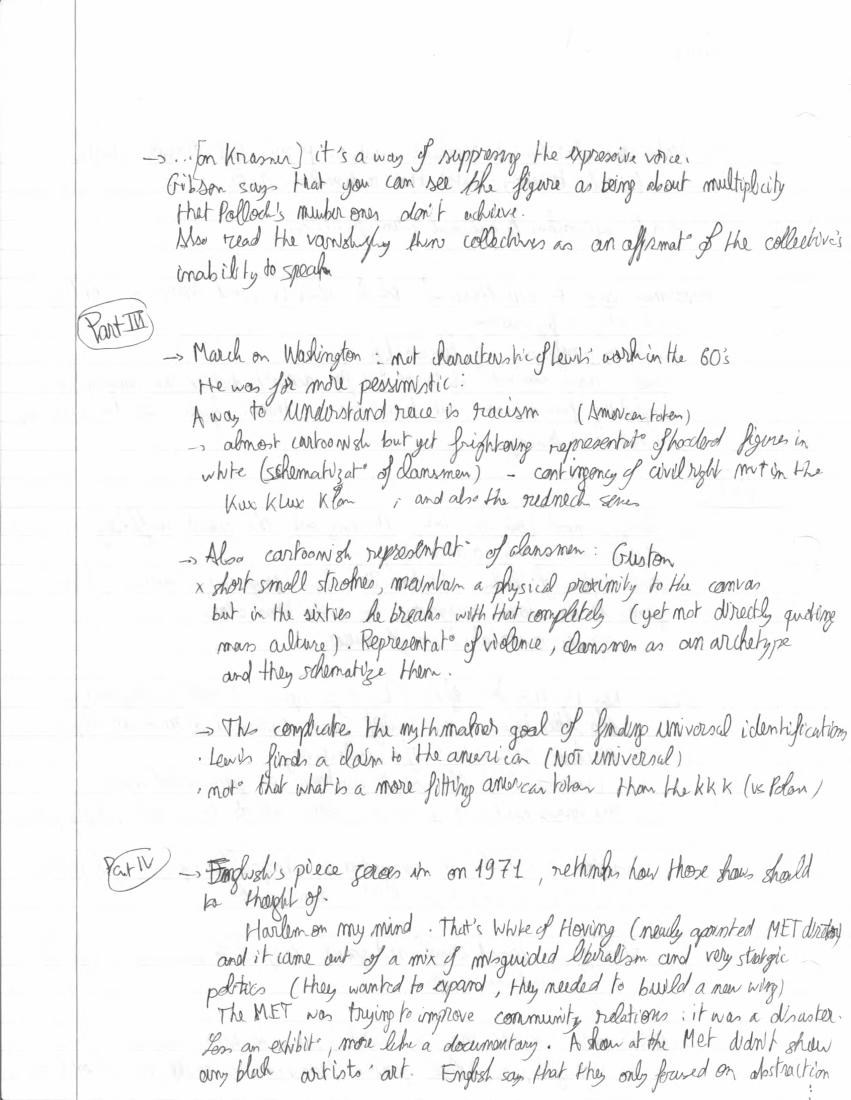 → ...[on Krasner] it's a way of suppressing the expressive voice.
Gibson says that you can see the figure as being about multiplicity
that Pollock's number ones don't achieve.
Also read the vanishing collectives as an affirmat° of the collective's
inability to speak
Part III
→ March on Washington : not characteristic of Lewis' work in the 60's
He was far more pessimistic :
A way to understand race is racism (American totem)
→ almost cartoonish but yet frightening representat° of hooded figures in
white (schematizat° of clansmen) - contingency of civil right mvt in the
Kux Klux Klan ; and also the redneck series
→ Also cartoonish representat° of clansmen : Guston
x short small strokes, maintain a physical proximity to the canvas
but in the sixties he breaks with that completely (yet not directly quoting
mass culture). Representat° of violence, clansmen as an archetype
and they schematize them.
→ This complicates the mythmaker goal of finding universal identifications
· Lewis finds a claim to the american (NOT universal)
· not° that what is a more fitting american totem than the KKK (vs
Part IV
→ English's piece zeroes in on 1971, rethinks how those shows should
be thought of.
Harlem on my mind . That's White of Hoving (newly apointed MET director)
and it came out of a mix of misguided liberalism and very strategic
politics (they wanted to expand, they needed to build a new wing)
The MET was trying to improve community relations : it was a disaster.
Less an exhibit°, more like a documentary. A show at the Met didn't show
any black artists' art. English say that they only focused on abstraction